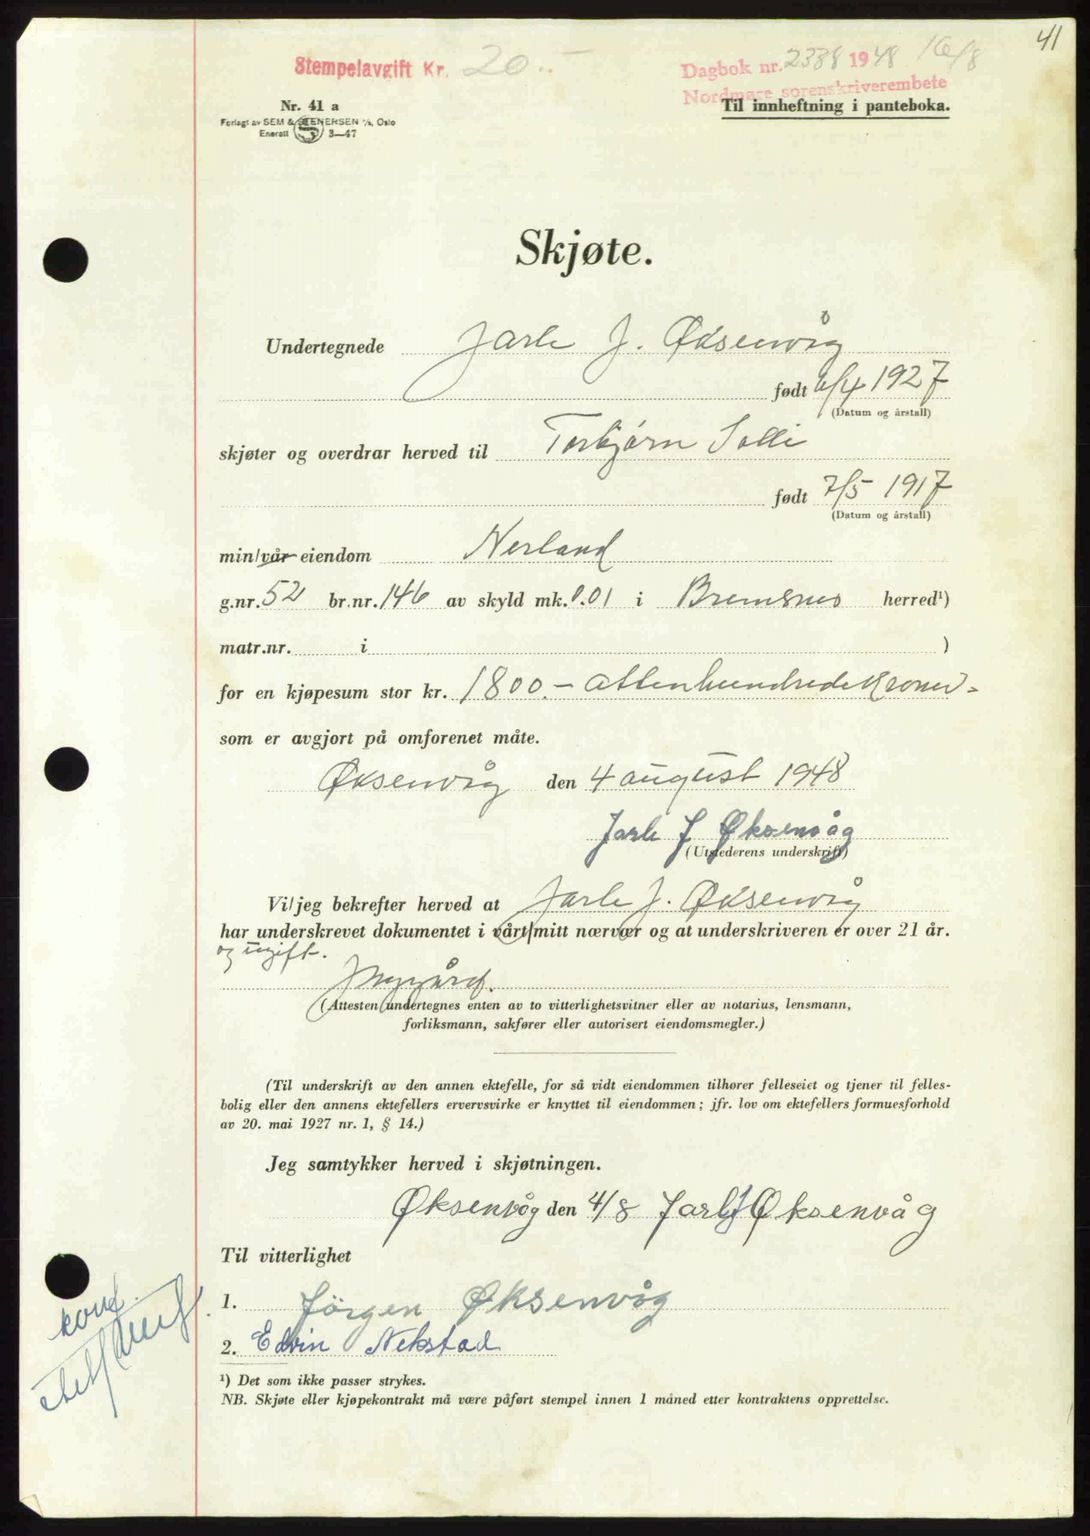 41
Stempelavgift Kr. 20.-
Dagbok nr. 2338 1948 16/8
Nordmøre sorenskriverembete
Nr. 41 a
Til innheftning i panteboka.
Forlagt av SEM & STENERSEN A/S, Oslo
Enerett S 3—47
Skjøte.
Undertegnede Jarle J. Øksenvåg
født 6/4 1927
(Datum og årstall)
skjøter og overdrar herved til Torbjørn Solli
født 7/5 1917
(Datum og årstall)
min/vår eiendom Nerland
g.nr. 52 br.nr. 146 av skyld mk. 0.01 i Bremsnes herred¹)
matr.nr. i )
for en kjøpesum stor kr. 1800.- attenhundredekroner-
som er avgjort på omforenet måte.
Øksenvåg den 4 august 1948
Jarle J Øksenvåg
(Utstederens underskrift)
Vi/jeg bekrefter herved at Jarle J. Øksenvåg
har underskrevet dokumentet i vårt/mitt nærvær og at underskriveren er over 21 år.
og ugift.
(Attesten undertegnes enten av to vitterlighetsvitner eller av notarius, lensmann,
forliksmann, sakfører eller autorisert eiendomsmegler.)
(Til underskrift av den annen ektefelle, for så vidt eiendommen tilhører felleseiet og tjener til felles-
bolig eller den annens ektefellers ervervsvirke er knyttet til eiendommen; jfr. lov om ektefellers formuesforhold
av 20. mai 1927 nr. 1, § 14.)
Jeg samtykker herved i skjøtningen.
Øksenvåg den 4/8 Jarle J Øksenvåg
Til vitterlighet
1. Jörgen Øksenvåg
2. Edvin Nekstad
¹) Det som ikke passer strykes.
NB. Skjøte eller kjøpekontrakt må være påført stempel innen 1 måned etter kontraktens opprettelse.